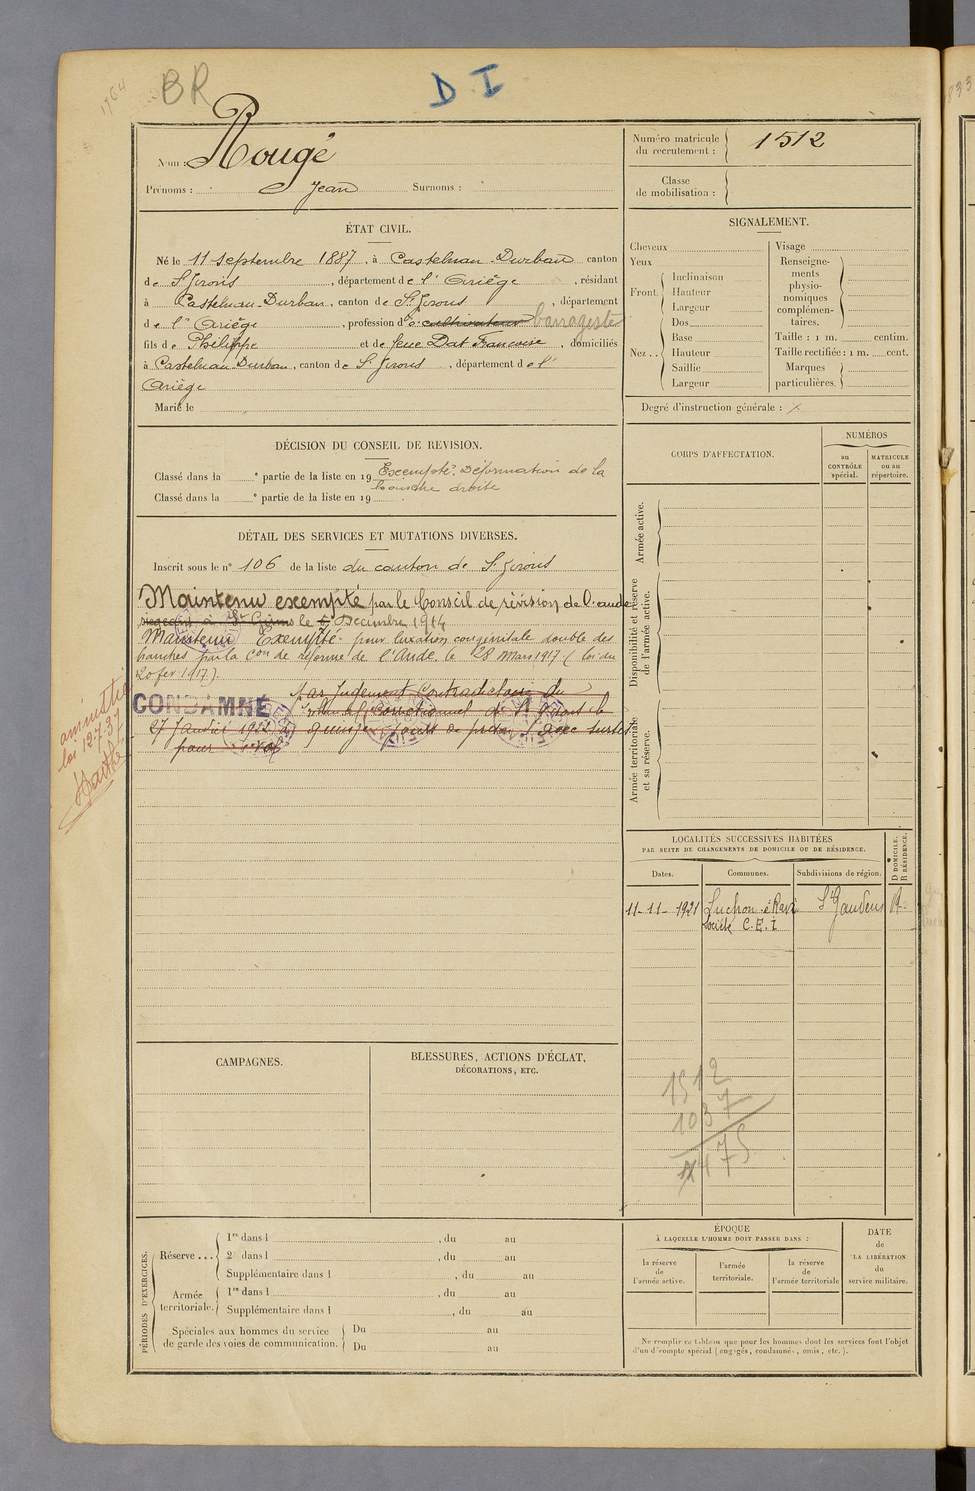 1764
BR
D I
Nom : Rougé
Prénoms : Jean Surnoms :
Numéro matricule du recrutement : 1512
Classe de mobilisation :
ÉTAT CIVIL.
Né le 11 septembre 1887, à Castelnau-Durban canton
de St Girons, département de l'Ariège, résidant
à Castelnau-Durban, canton de St Girons, département
de l'Ariège, profession de cultivateur barrageste
fils de Philippe et de feue Dat Françoise, domiciliés
à Castelnau Durban, canton de St Girons, département de l'
Ariège
Marié le
SIGNALEMENT.
Cheveux
Yeux
Front. Inclinaison
Hauteur
Largeur
Nez.. Dos
Base
Hauteur
Saillie
Largeur
Visage
Renseignements physionomiques complémentaires.
Taille : 1 m. centim.
Taille rectifiée : 1 m. cent.
Marques particulières.
Degré d'instruction générale : x
DÉCISION DU CONSEIL DE REVISION.
Classé dans la e partie de la liste en 19 Exempté. Déformation de la
Classé dans la e partie de la liste en 19 hanche droite
DÉTAIL DES SERVICES ET MUTATIONS DIVERSES.
Inscrit sous le n° 106 de la liste du canton de St Girons
Maintenu exempté par le Conseil de révision de l'aude
siégeant à St Girons le 6 Décembre 1914
Maintenu Exempté pour luxation congénitale double des
hanches par la Con de réforme de l'Aude le 28 Mars 1917 (loi du
20 fev 1917).
CONDAMNÉ Par Jugement Contradictoire du
Tribunal Correctionnel de St Gaudens le
27 Janvier 1922 à quinze jours de prison avec sursis
pour vol
amnistié
loi 12-7-37
CORPS D'AFFECTATION.
NUMÉROS
au CONTRÔLE spécial.
MATRICULE ou au répertoire.
Armée active.
Disponibilité et réserve de l'armée active.
Armée territoriale et sa réserve.
LOCALITÉS SUCCESSIVES HABITÉES
PAR SUITE DE CHANGEMENTS DE DOMICILE OU DE RÉSIDENCE.
Dates. Communes. Subdivisions de région. D DOMICILE. R RÉSIDENCE.
11-11-1921 Luchon St Gaudens R.
Société C.E.I
1512
1037
475
CAMPAGNES.
BLESSURES, ACTIONS D'ÉCLAT,
DÉCORATIONS, ETC.
PÉRIODES D'EXERCICES.
Réserve ... 1re dans l , du au
2e dans l , du au
Supplémentaire dans l , du au
Armée territoriale. 1re dans l , du au
Supplémentaire dans l , du au
Spéciales aux hommes du service de garde des voies de communication. Du au
Du au
ÉPOQUE
À LAQUELLE L'HOMME DOIT PASSER DANS :
la réserve de l'armée active.
l'armée territoriale.
la réserve de l'armée territoriale
DATE de LA LIBÉRATION du service militaire.
Ne remplir ce tableau que pour les hommes dont les services font l'objet
d'un décompte spécial (engagés, condamnés, omis, etc.).